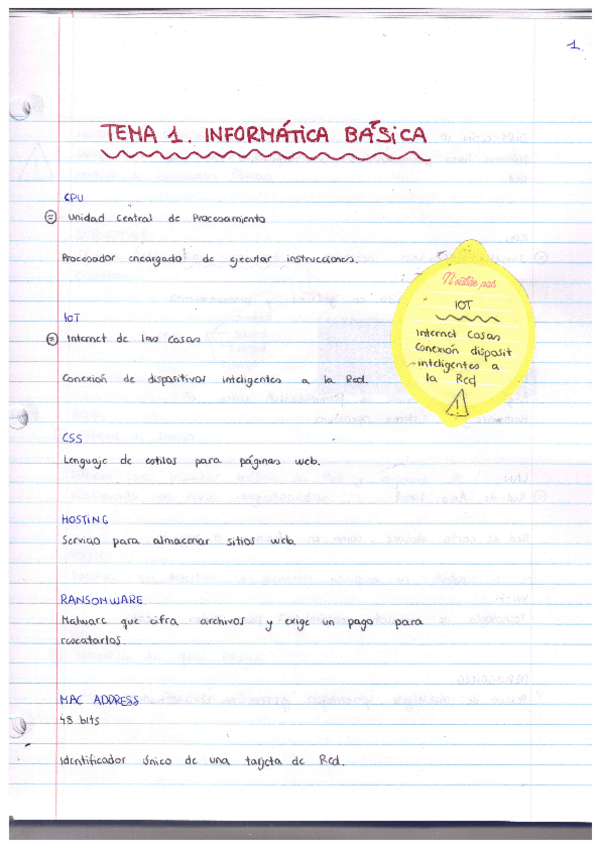 1
TEMA 1. INFORMÁTICA BÁSICA
CPU
= Unidad Central de Procesamiento
Procesador encargado de ejecutar instrucciones.
IoT
= Internet de las cosas
Conexión de dispositivos inteligentes a la Red.
N'oublie pas
IOT
Internet Cosas
Conexión disposit
inteligentes a
la Red
!
CSS
Lenguaje de estilos para páginas web.
HOSTING
Servicio para almacenar sitios web.
RANSOMWARE
Malware que cifra archivos y exige un pago para
rescatarlos.
MAC ADDRESS
48 bits
Identificador único de una tarjeta de Red.